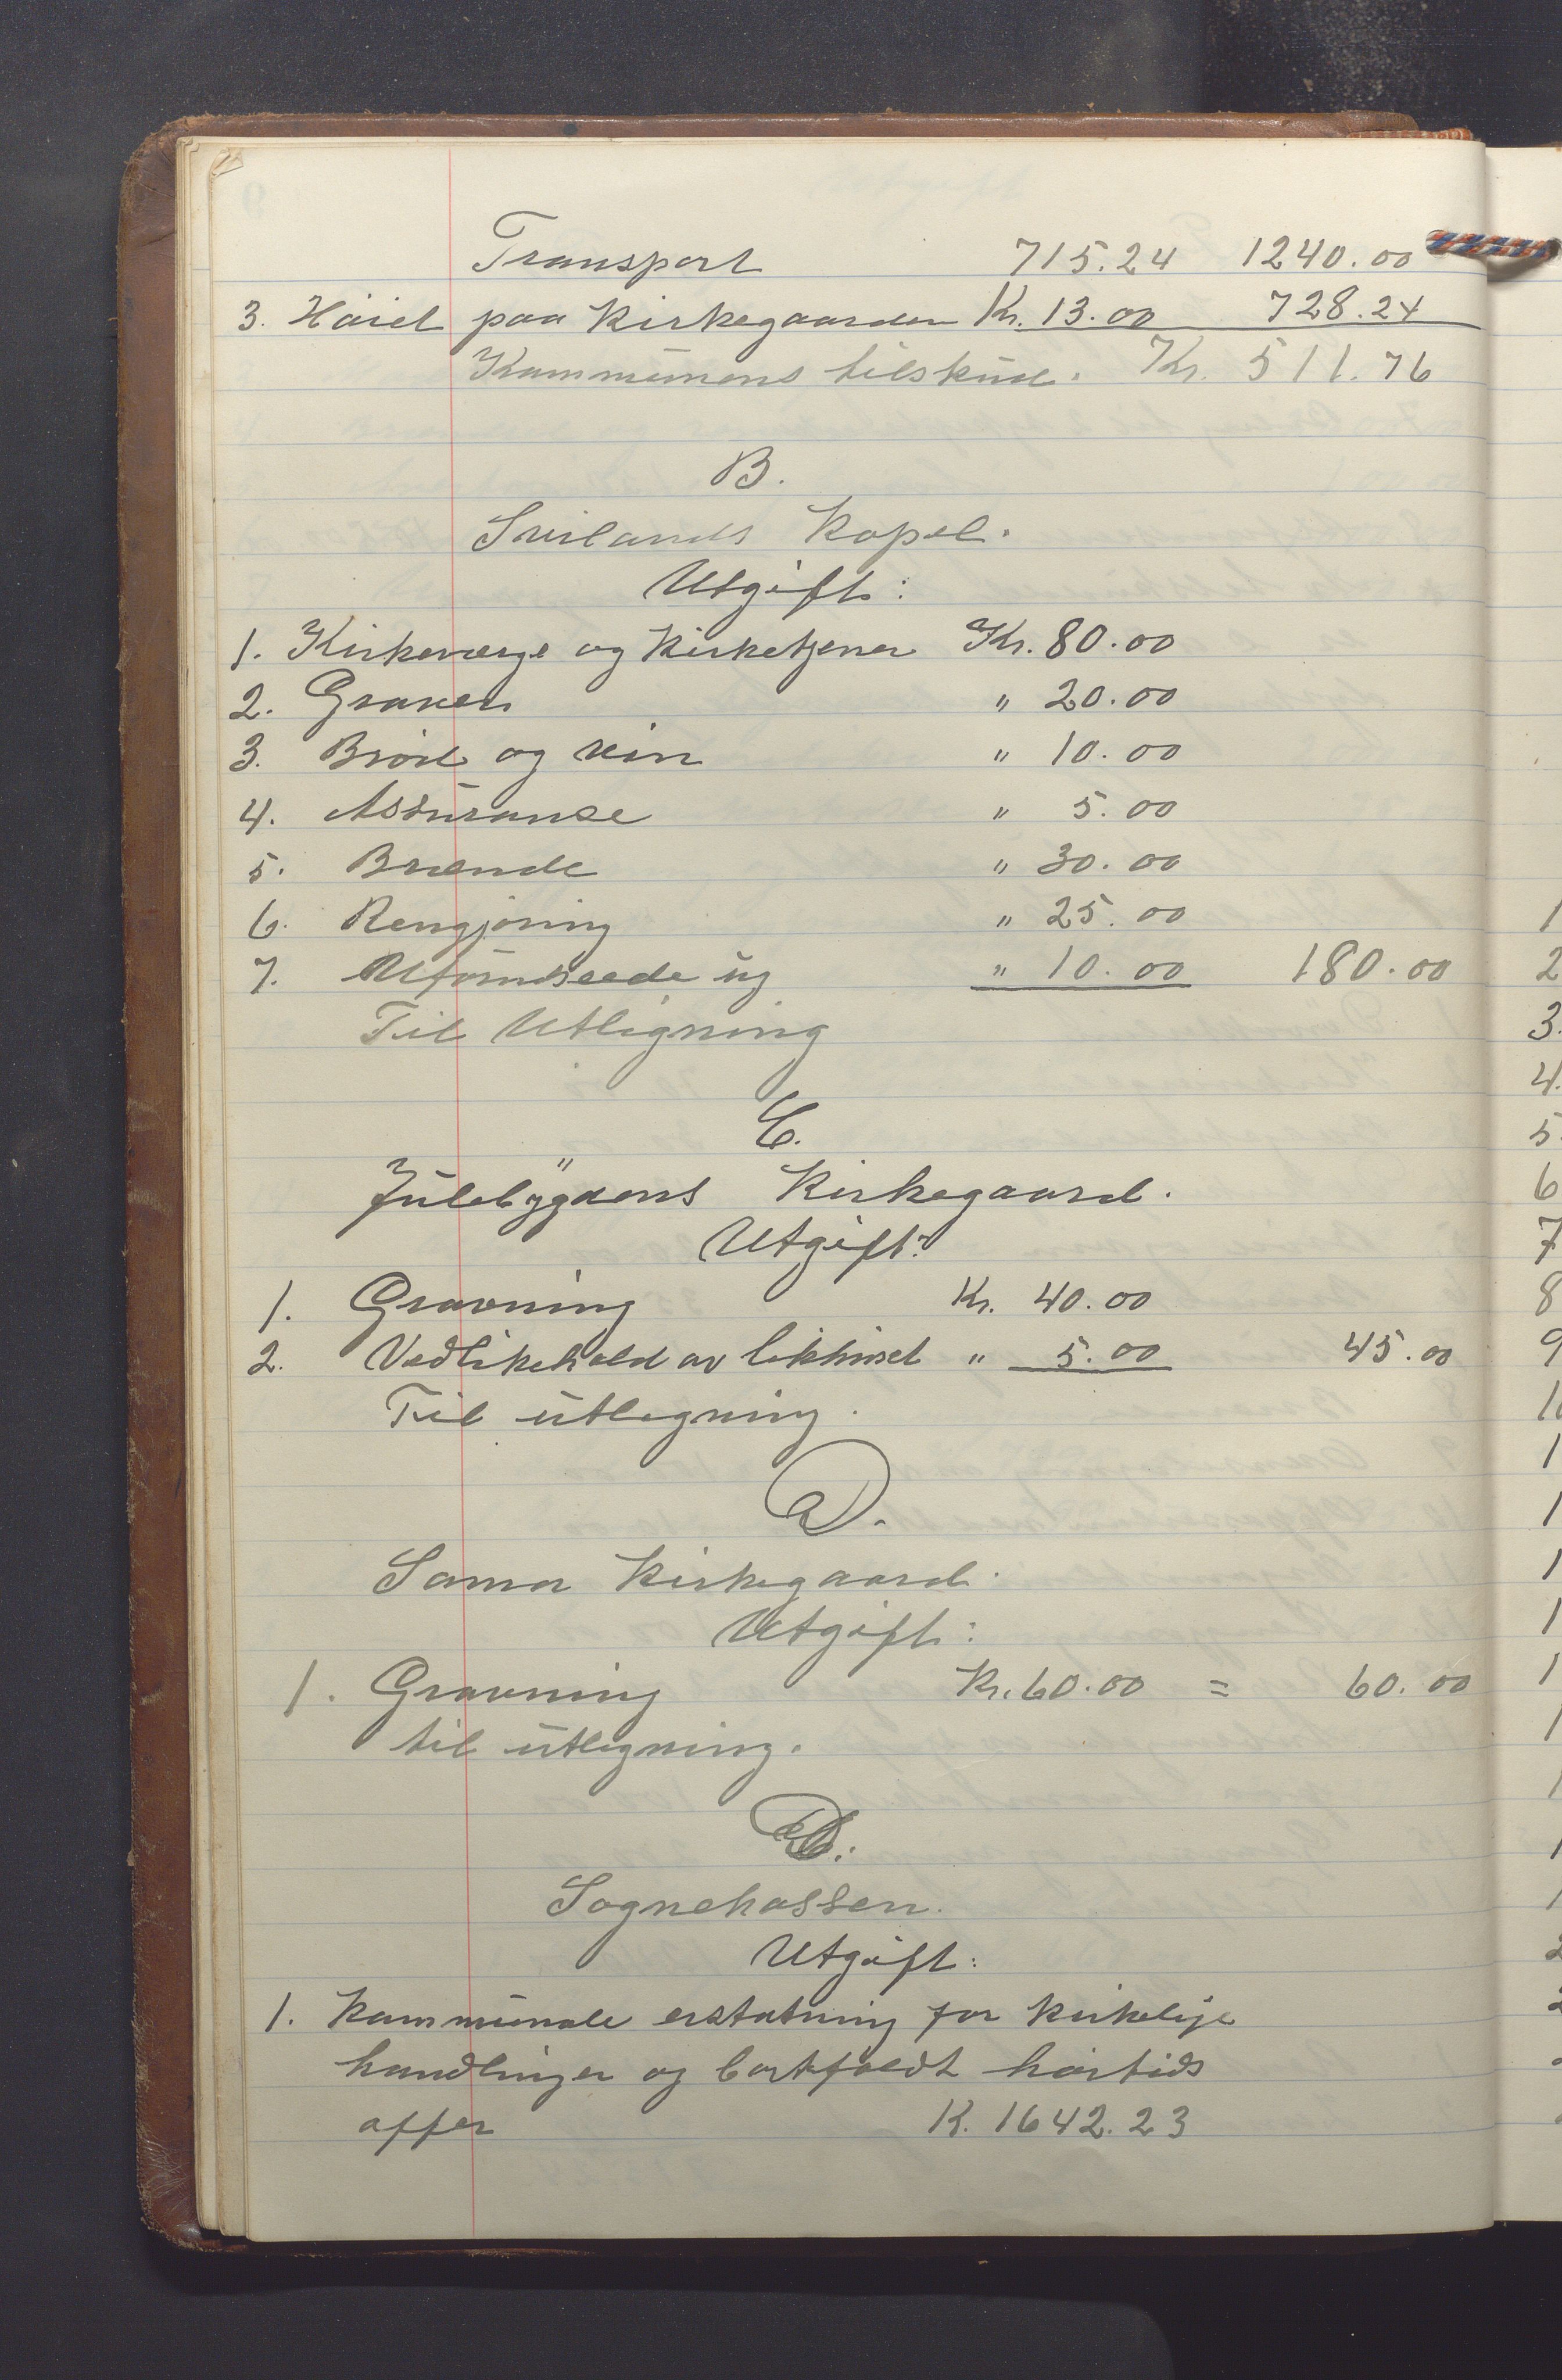 Transport 715.24 1240.00
3. Høiet paa Kirkegaarden Kr. 13.00 728.24
Kommunens tilskud. Kr. 511.76
B.
Svilands Kapel.
Utgift:
1. Kirkeværge og Kirketjener Kr. 80.00
2. Graver " 20.00
3. Brød og vin " 10.00
4. Assuranse " 5.00
5. Brænde " 30.00
6. Rengjøring " 25.00
7. Uforudseede ug " 10.00 180.00
Til Utligning
C.
Julebygdens Kirkegaard.
Utgift:
1. Gravning Kr. 40.00
2. Vedlikehold av likhuset " 5.00 45.00
Til utligning.
D.
Soma Kirkegaard.
Utgift:
1. Gravning Kr. 60.00 = 60.00
til utligning.
Sognekassen.
Utgift:
1. Kommunale erstatning for kirkelige
handlinger og bortfaldt høitids
offer K. 1642.23
1
2
3.
4.
5.
6
7
8
9